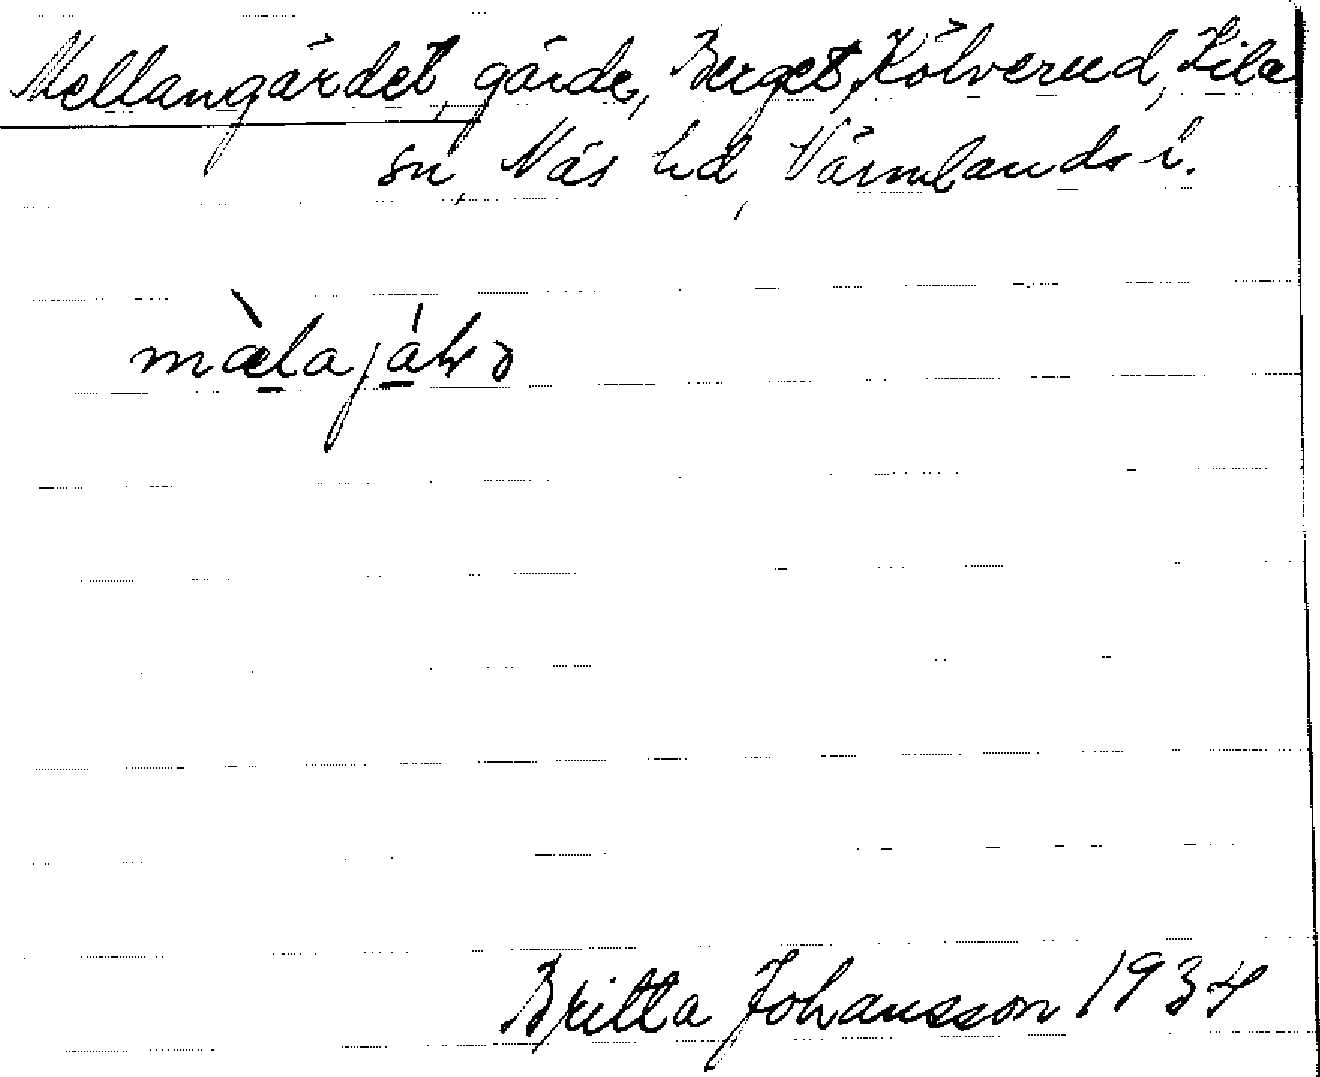 Mellangärdet, gärde, Berget, Kölverud, Kila
sn, Näs hd, Värmlands l.
mæ̀lajálɜ
Britta Johansson 1934